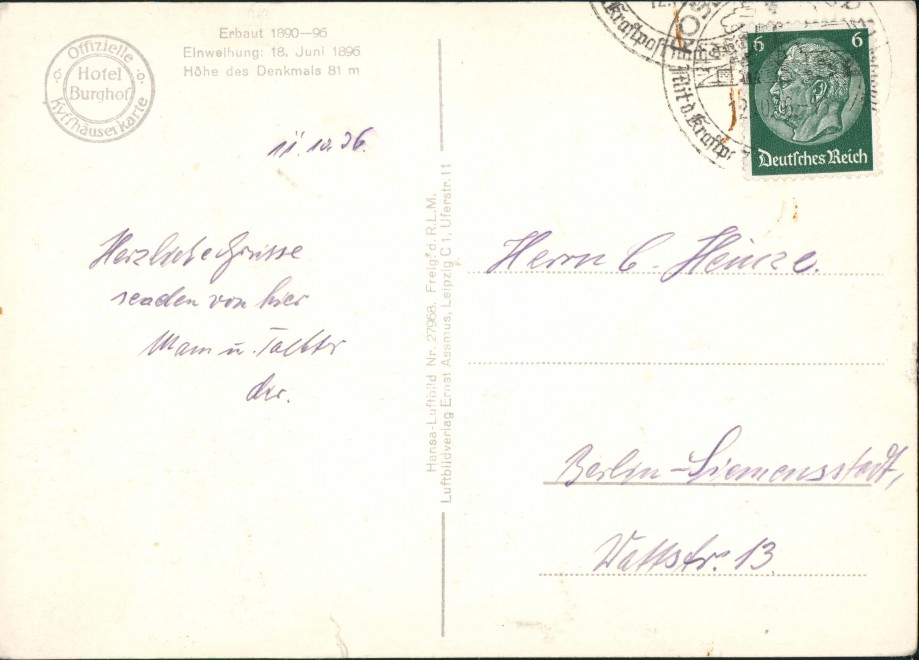 Erbaut 1890—96
Einweihung: 18. Juni 1896
Höhe des Denkmals 81 m
Offizielle
Hotel
Burghof
Kyffhäuserkarte
11.10.36.
Herzliche Grüsse
senden von hier
Mam u. Tochter
Hansa-Luftbild Nr. 27968. Freig. d. R.L.M.
Luftbildverlag Ernst Assmus, Leipzig C 1, Uferstr. 11
Kraftpost
Mit d. Kraftp
6 6
Deutsches Reich
Herrn C. Heinze.
Berlin-Siemensstadt,
Wattstr. 13